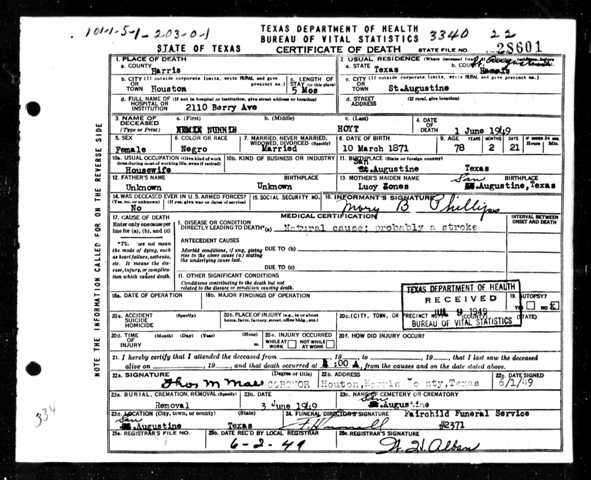 1011-5-1-203-0-1
TEXAS DEPARTMENT OF HEALTH
BUREAU OF VITAL STATISTICS
3340 22
STATE OF TEXAS
CERTIFICATE OF DEATH
STATE FILE NO. 28601
1. PLACE OF DEATH
a. COUNTY
Harris
2. USUAL RESIDENCE
a. STATE
Texas
b. COUNTY
b. CITY (If outside corporate limits, write RURAL and give precinct no.)
TOWN Houston
c. LENGTH OF STAY (in this place)
5 Mos
c. CITY (If outside corporate limits, write RURAL and give precinct no.)
TOWN St.Augustine
d. FULL NAME OF (If not in hospital or institution, give street address or location)
HOSPITAL OR INSTITUTION
2110 Berry Ave
d. STREET ADDRESS
3. NAME OF DECEASED (Type or Print)
a. (First)
b. (Middle)
c. (Last)
HOYT
4. DATE OF DEATH
1 June 1949
5. SEX
Female
6. COLOR OR RACE
Negro
7. MARRIED, NEVER MARRIED, WIDOWED, DIVORCED (Specify)
Married
8. DATE OF BIRTH
10 March 1871
9. AGE YEARS MONTHS DAYS
78 2 21
10a. USUAL OCCUPATION (Give kind of work done during most of working life, even if retired)
Housewife
10b. KIND OF BUSINESS OR INDUSTRY
11. BIRTHPLACE (State or foreign country)
San
St.Augustine Texas
12. FATHER'S NAME
Unknown
BIRTHPLACE
Unknown
13. MOTHER'S MAIDEN NAME
Lucy Jones
BIRTHPLACE
San
.Augustine,Texas
14. WAS DECEASED EVER IN U.S. ARMED FORCES?
(Yes, no, or unknown) (If yes, give war or dates of service)
No
15. SOCIAL SECURITY NO.
16. INFORMANT'S SIGNATURE
Mary B Phillips
17. CAUSE OF DEATH
Enter only one cause per line for (a), (b), and (c)
MEDICAL CERTIFICATION
INTERVAL BETWEEN ONSET AND DEATH
I. DISEASE OR CONDITION
DIRECTLY LEADING TO DEATH*(a) Natural cause: probably a stroke
*This does not mean the mode of dying, such as heart failure, asthenia, etc. It means the disease, injury, or complication which caused death.
ANTECEDENT CAUSES
Morbid conditions, if any, giving rise to the above cause (a) stating the underlying cause last.
DUE TO (b)
DUE TO (c)
II. OTHER SIGNIFICANT CONDITIONS
Conditions contributing to the death but not related to the disease or condition causing death.
18a. DATE OF OPERATION
18b. MAJOR FINDINGS OF OPERATION
19. AUTOPSY?
YES NO X
TEXAS DEPARTMENT OF HEALTH
RECEIVED
JUL 9 1949
BUREAU OF VITAL STATISTICS
20a. ACCIDENT SUICIDE HOMICIDE (Specify)
20b. PLACE OF INJURY (e.g., in or about home, farm, factory, street, office bldg., etc.)
20c. (CITY, TOWN, OR PRECINCT NO.) (COUNTY) (STATE)
20d. TIME OF INJURY (Month) (Day) (Year) (Hour)
20e. INJURY OCCURRED
WHILE AT WORK NOT WHILE AT WORK
20f. HOW DID INJURY OCCUR?
21. I hereby certify that I attended the deceased from , 19 , to , 19 , that I last saw the deceased
alive on , 19 , and that death occurred at :00 A m., from the causes and on the date stated above.
22a. SIGNATURE (Degree or title)
Thos M Mae CORONOR
22b. ADDRESS
Houton,Harris County,Texas
22c. DATE SIGNED
6/1/49
23a. BURIAL, CREMATION, REMOVAL (Specify)
Removal
23b. DATE
3 June 1949
23c. NAME OF CEMETERY OR CREMATORY
San
.Augustine
23d. LOCATION (City, town, or county) (State)
San
.Augustine Texas
24. FUNERAL DIRECTOR'S SIGNATURE
Fairchild Funeral Service
#2371
25a. REGISTRAR'S FILE NO.
25b. DATE REC'D BY LOCAL REGISTRAR
6-2-49
25c. REGISTRAR'S SIGNATURE
NOTE THE INFORMATION CALLED FOR ON THE REVERSE SIDE
334